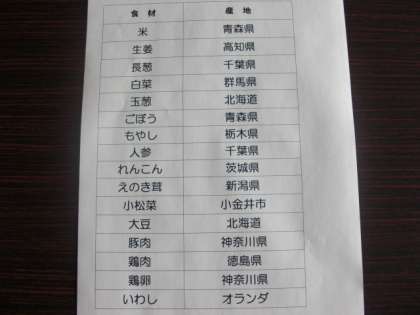 食材 産地
米 青森県
生姜 高知県
長葱 千葉県
白菜 群馬県
玉葱 北海道
ごぼう 青森県
もやし 栃木県
人参 千葉県
れんこん 茨城県
えのき茸 新潟県
小松菜 小金井市
大豆 北海道
豚肉 神奈川県
鶏肉 徳島県
鶏卵 神奈川県
いわし オランダ